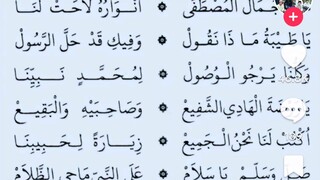 جَمَالُ الْمُصْطَفَى ۞ أَنْوَارُهُ لَاحَتْ لَنَا
يَا طِيْبَةُ مَا ذَا نَقُول ۞ وَفِيكِ قَدْ حَلَّ الرَّسُوْل
وَكُلُّنَا يَرْجُو الْوُصُوْل ۞ لِمُحَمَّدٍ نَبِيِّنَا
الْهَادِي الشَّفِيْعِ ۞ وَصَاحِبَيْهِ وَالْبَقِيْعِ
اُكْتُبْ لَنَا نَحْنُ الْجَمِيْعِ ۞ زِيَارَةً لِحَبِيْبِنَا
وَسَلِّمْ يَا سَلَامُ ۞ عَلَى النَّبِيِّ مَاحِي الظَّلَامِ